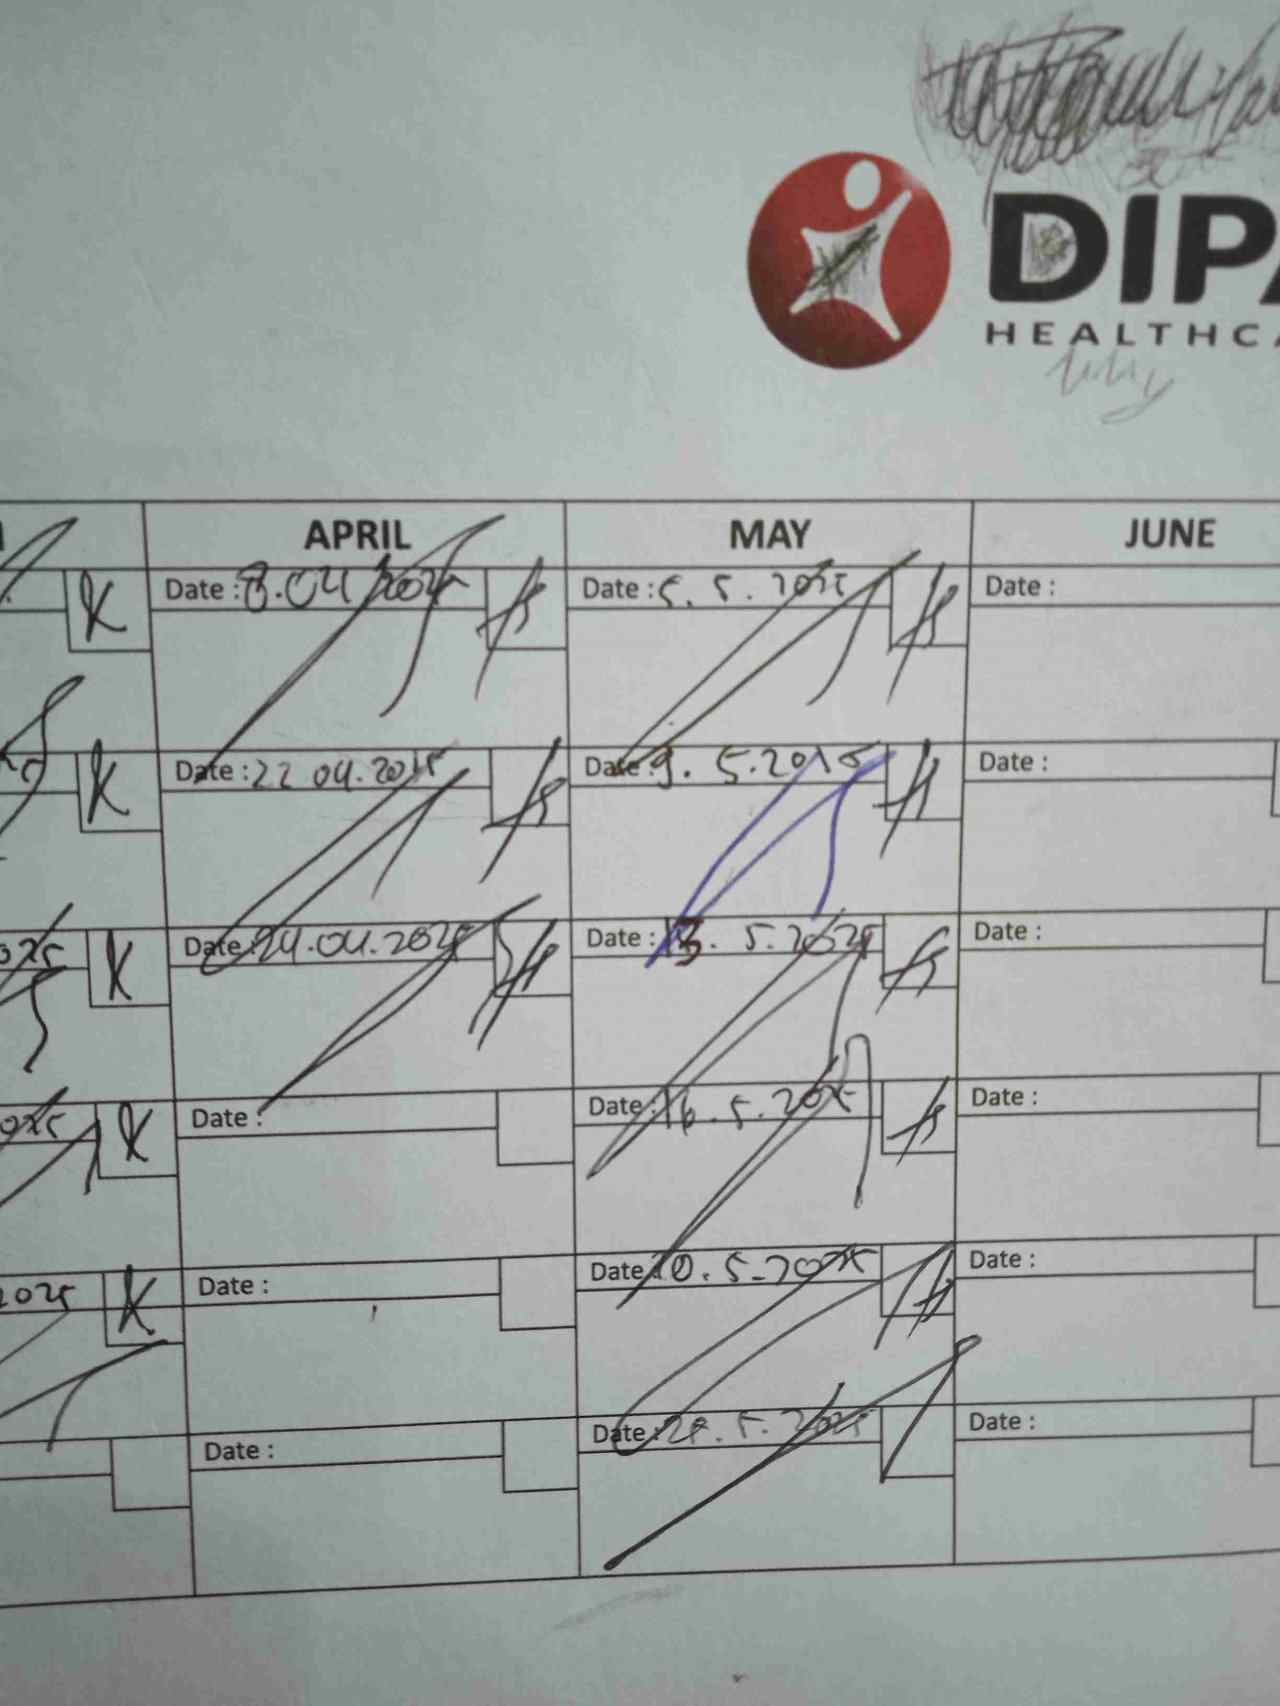 DIPA
HEALTHCA
APRIL MAY JUNE
K Date : 8.04.2025 Date : 5.5.2025 Date :
K Date : 22 04.2025 Date : 9.5.2025 Date :
025 K Date : 24.04.2025 Date : 13.5.2025 Date :
025 K Date : Date : 16.5.2025 Date :
2025 K Date : Date 20.5-2025 Date :
Date : Date : 5.2025 Date :